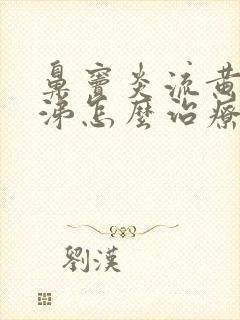 鼻竇炎流黃
涕怎麼治療
劉漢